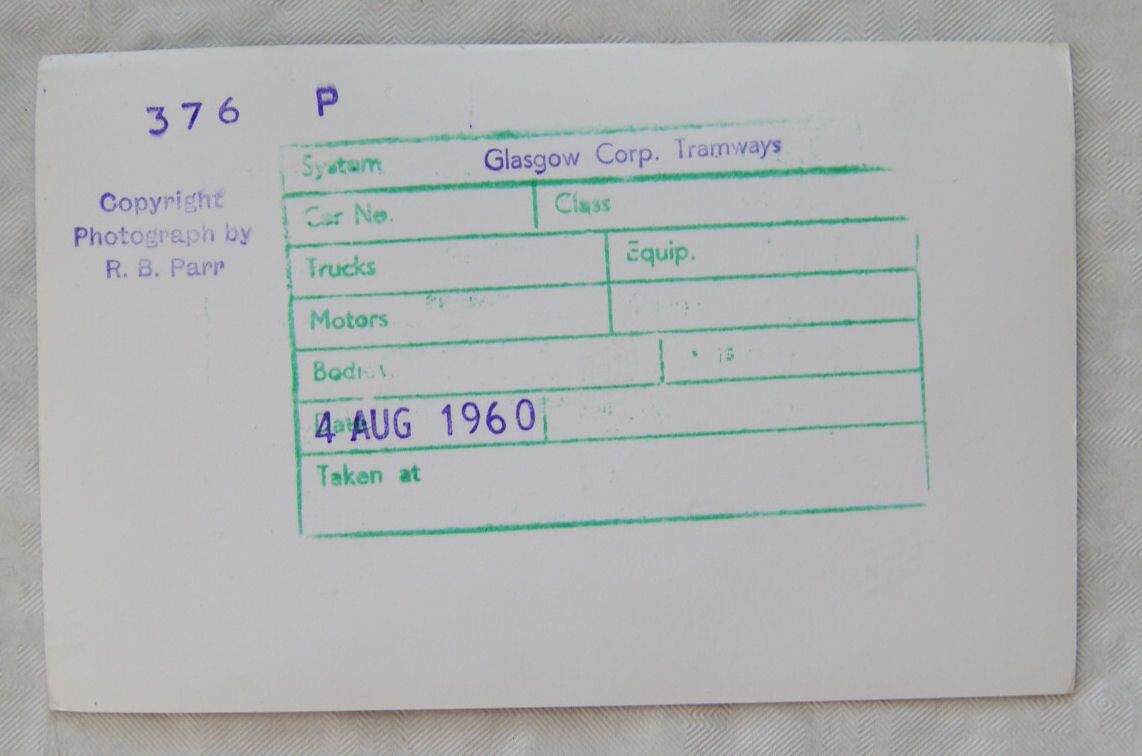 376 P
System Glasgow Corp. Tramways
Copyright
Photograph by
R. B. Parr
Car No. Class
Trucks Equip.
Motors
4 AUG 1960
Taken at